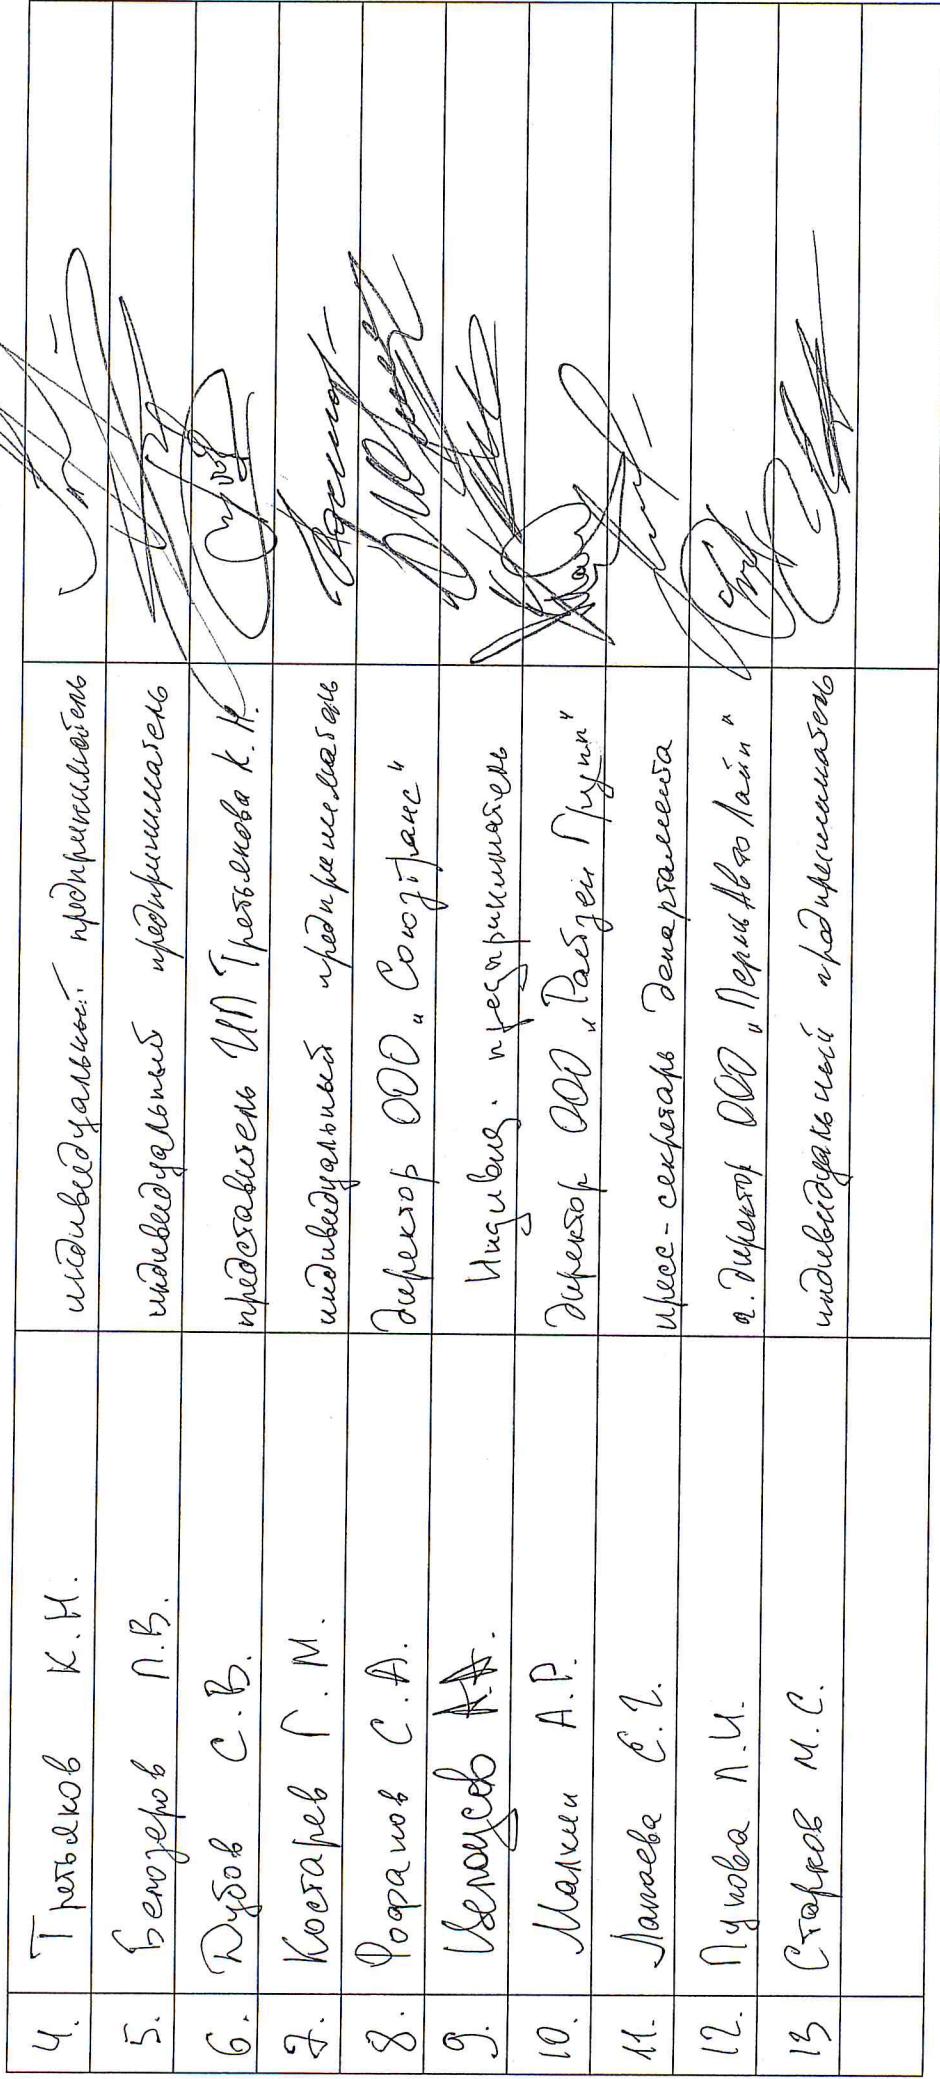 4. Третьяков К.Н. индивидуальный предприниматель
5. Белозеров П.В. индивидуальный предприниматель
6. Дубов С.В. представитель ИП Третьякова К.Н.
7. Костарев Г.М. индивидуальный предприниматель
8. Фофанов С.А. директор ООО „Союзтранс"
9. Индивид. предприниматель
10. Малкин А.Р. директор ООО „Раббзеи Групп"
11. Лапаева Е.Г. пресс-секретарь департамента
12. Пунова Л.И. директор ООО „ПермьАвтоЛайн"
13 Старков М.С. индивидуальный предприниматель